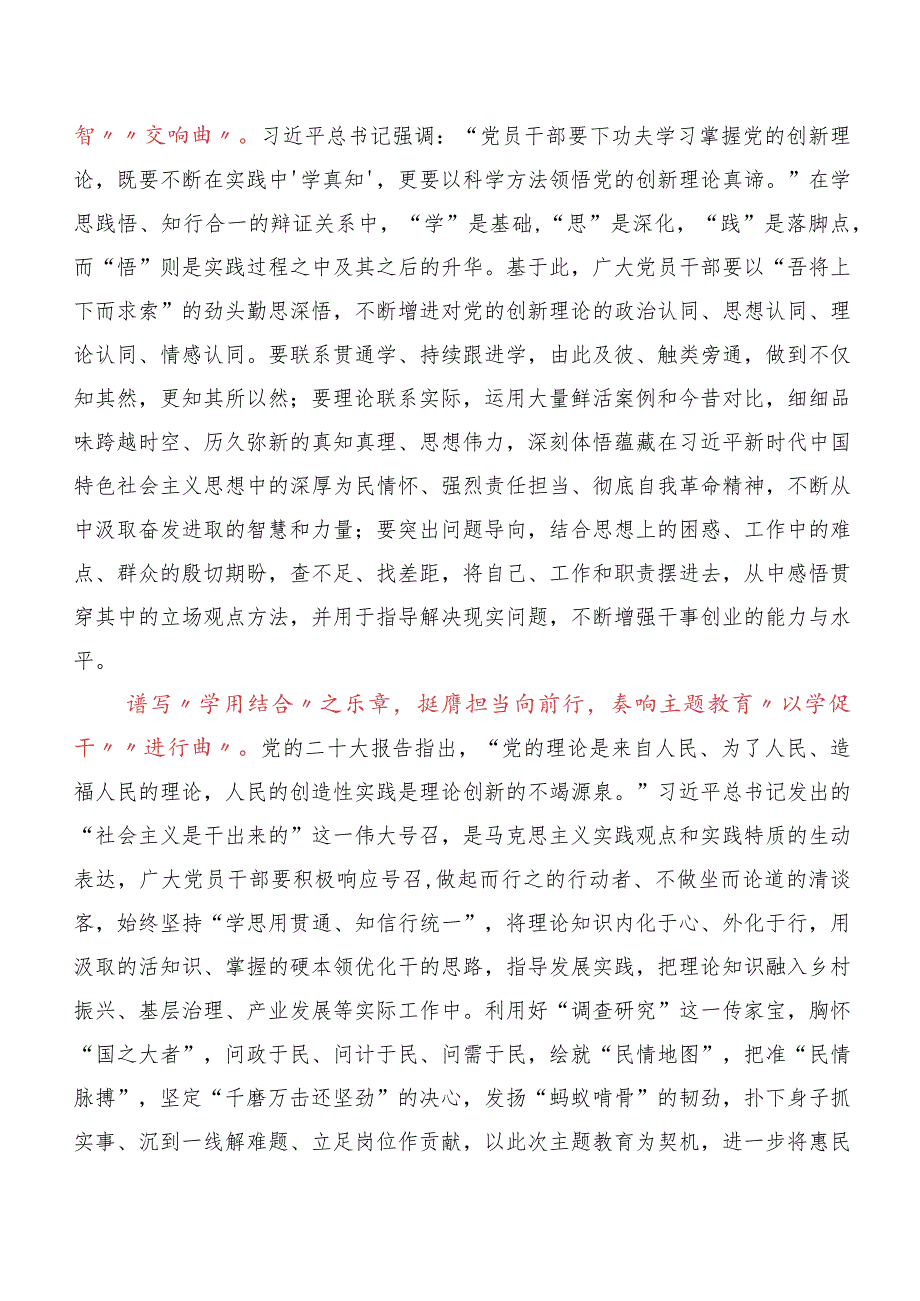 智〃〃交响曲〃。习近平总书记强调：“党员干部要下功夫学习掌握党的创新理
论，既要不断在实践中'学真知'，更要以科学方法领悟党的创新理论真谛。”在学
思践悟、知行合一的辩证关系中，“学”是基础,“思”是深化，“践”是落脚点，
而“悟”则是实践过程之中及其之后的升华。基于此，广大党员干部要以“吾将上
下而求索”的劲头勤思深悟，不断增进对党的创新理论的政治认同、思想认同、理
论认同、情感认同。要联系贯通学、持续跟进学，由此及彼、触类旁通，做到不仅
知其然，更知其所以然；要理论联系实际，运用大量鲜活案例和今昔对比，细细品
味跨越时空、历久弥新的真知真理、思想伟力，深刻体悟蕴藏在习近平新时代中国
特色社会主义思想中的深厚为民情怀、强烈责任担当、彻底自我革命精神，不断从
中汲取奋发进取的智慧和力量；要突出问题导向，结合思想上的困惑、工作中的难
点、群众的殷切期盼，查不足、找差距，将自己、工作和职责摆进去，从中感悟贯
穿其中的立场观点方法，并用于指导解决现实问题，不断增强干事创业的能力与水
平。
谱写〃学用结合〃之乐章，挺膺担当向前行，奏响主题教育〃以学促
干〃〃进行曲〃。党的二十大报告指出，“党的理论是来自人民、为了人民、造
福人民的理论，人民的创造性实践是理论创新的不竭源泉。”习近平总书记发出的
“社会主义是干出来的”这一伟大号召，是马克思主义实践观点和实践特质的生动
表达，广大党员干部要积极响应号召,做起而行之的行动者、不做坐而论道的清谈
客，始终坚持“学思用贯通、知信行统一”，将理论知识内化于心、外化于行，用
汲取的活知识、掌握的硬本领优化干的思路，指导发展实践，把理论知识融入乡村
振兴、基层治理、产业发展等实际工作中。利用好“调查研究”这一传家宝，胸怀
“国之大者”，问政于民、问计于民、问需于民，绘就“民情地图”，把准“民情
脉搏”，坚定“千磨万击还坚劲”的决心，发扬“蚂蚁啃骨”的韧劲，扑下身子抓
实事、沉到一线解难题、立足岗位作贡献，以此次主题教育为契机，进一步将惠民